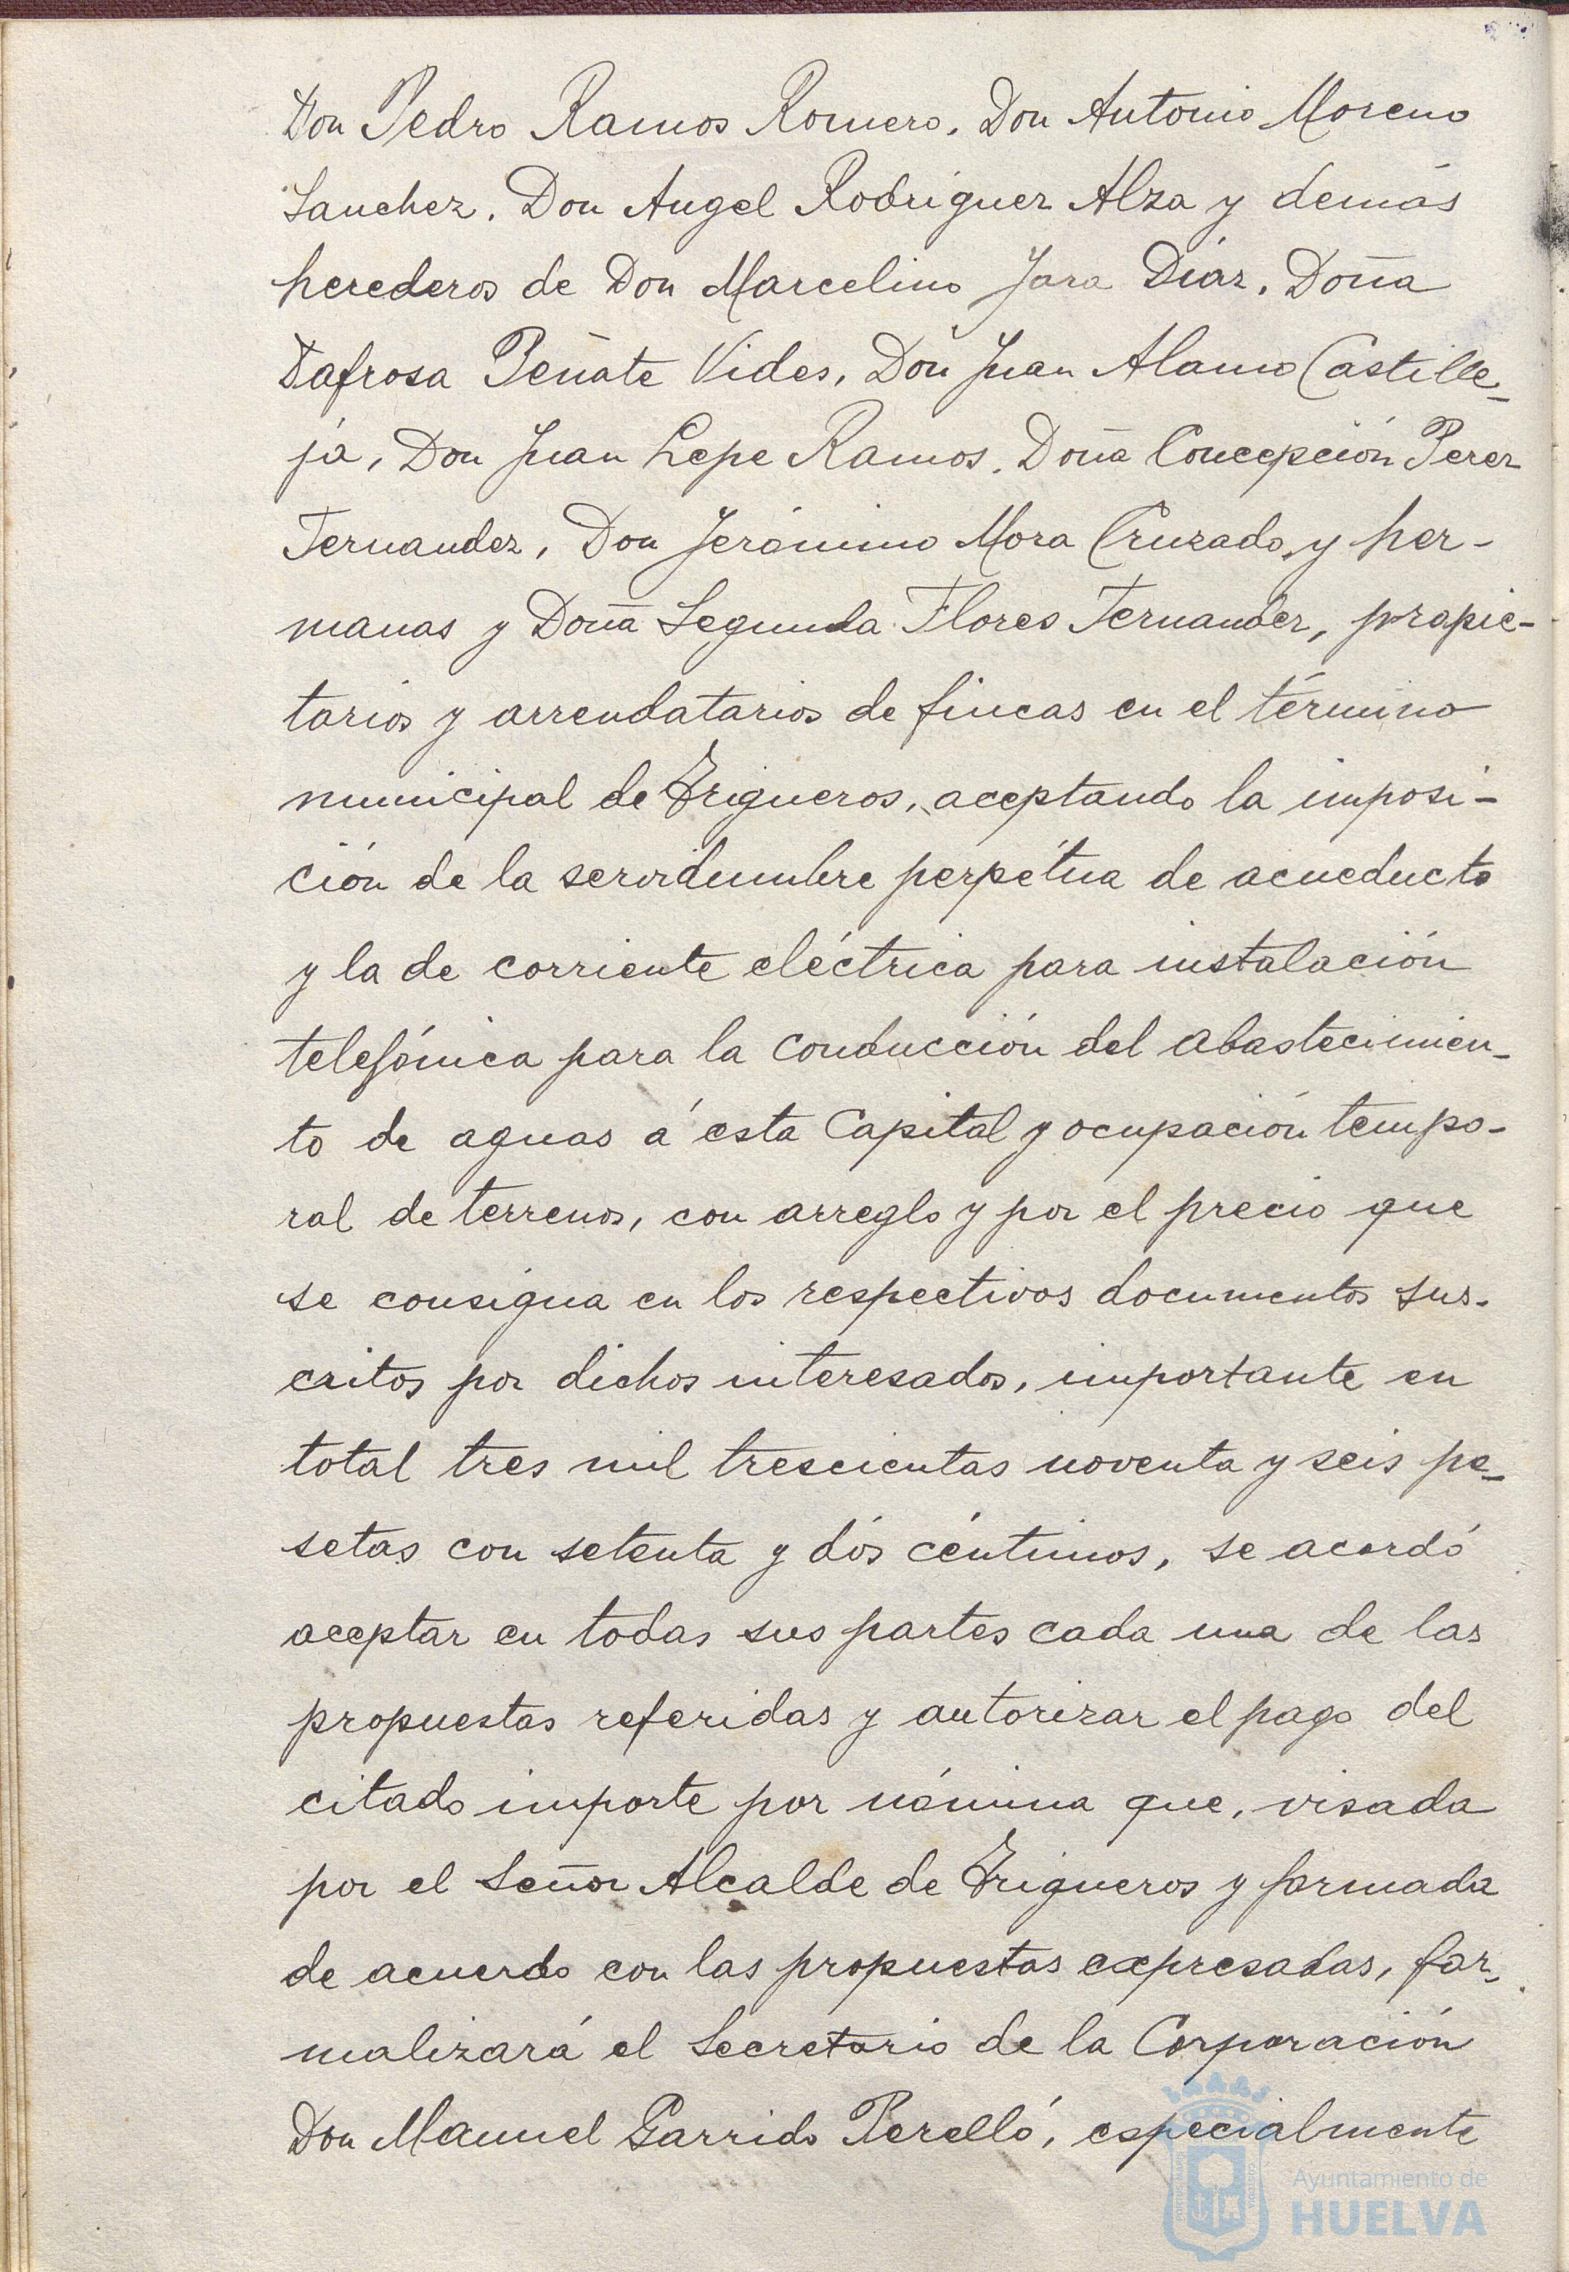 Don Pedro Ramos Romero, Don Antonio Moreno
Sanchez, Don Angel Rodriguez Alza y demás
herederos de Don Marcelino Jara Diaz, Doña
Dafrosa Peñate Vides, Don Juan Alamo Castille-
ja, Don Juan Lepe Ramos, Doña Concepción Perez
Fernandez, Don Jerónimo Mora Cruzado y her-
manas y Doña Segunda Flores Fernandez, propie-
tarios y arrendatarios de fincas en el término
municipal de Trigueros, aceptando la imposi-
ción de la servidumbre perpétua de acueducto
y la de corriente eléctrica para instalación
telefónica para la conducción del abastecimien-
to de aguas á esta Capital y ocupación tempo-
ral de terrenos, con arreglo y por el precio que
se consigna en los respectivos documentos sus-
critos por dichos interesados, importante en
total tres mil trescientas noventa y seis pe-
setas con setenta y dós céntimos, se acordó
aceptar en todas sus partes cada una de las
propuestas referidas y autorizar el pago del
citado importe por nómina que, visada
por el Señor Alcalde de Trigueros y formada
de acuerdo con las propuestas expresadas, for-
malizará el Secretario de la Corporación
Don Manuel Garrido Perelló, especialmente
Ayuntamiento de
HUELVA